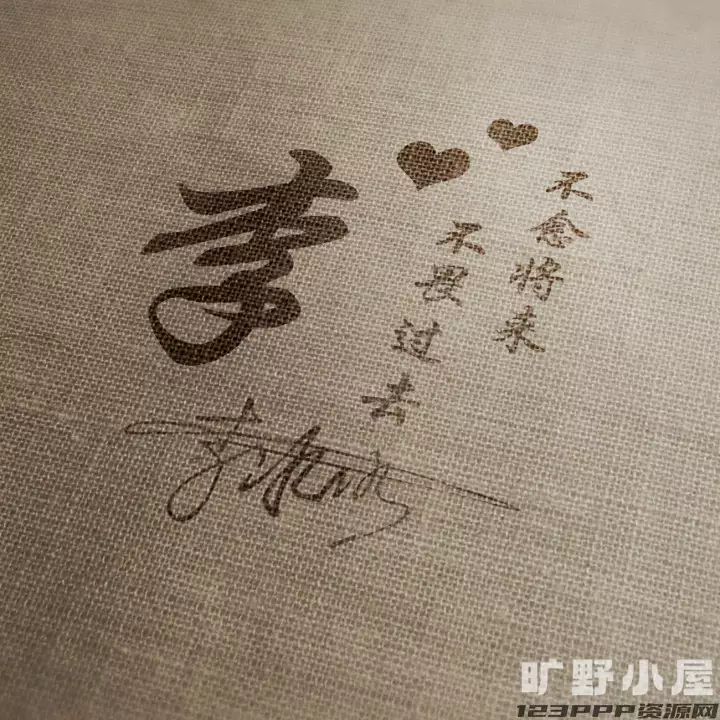 李
不念将来
不畏过去
旷野小屋
123PPP资源网